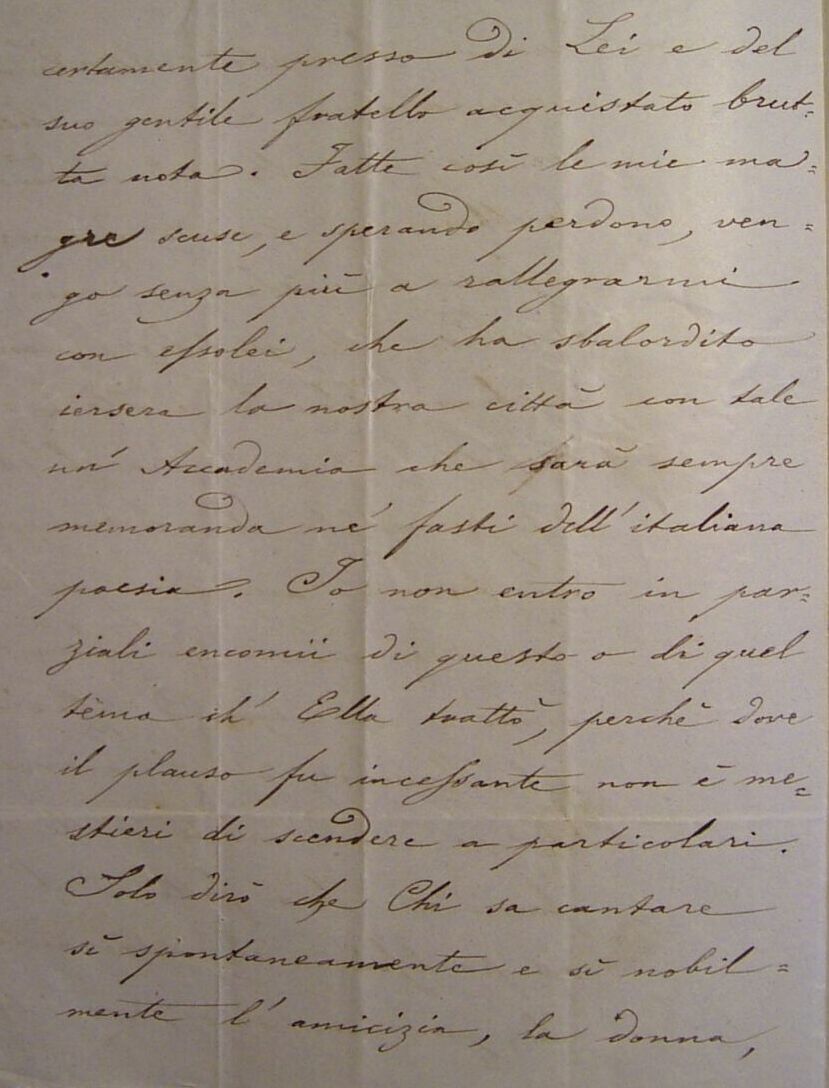 certamente presso di Lei e del
suo gentile fratello acquistato brut=
ta nota. Fatte così le mie ma=
gre scuse, e sperando perdono, ven=
go senza più a rallegrarmi
con essolei, che ha sbalordito
iersera la nostra città con tale
un' Accademia che sarà sempre
memoranda ne' fasti dell'italiana
poesia. Io non entro in par=
ziali encomii di questo o di quel
tèma ch' Ella trattò, perchè dove
il plauso fu incessante non è me=
stieri di scendere a particolari.
Solo dirò che Chi sa cantare
sì spontaneamente e sì nobil=
mente l'amicizia, la donna,